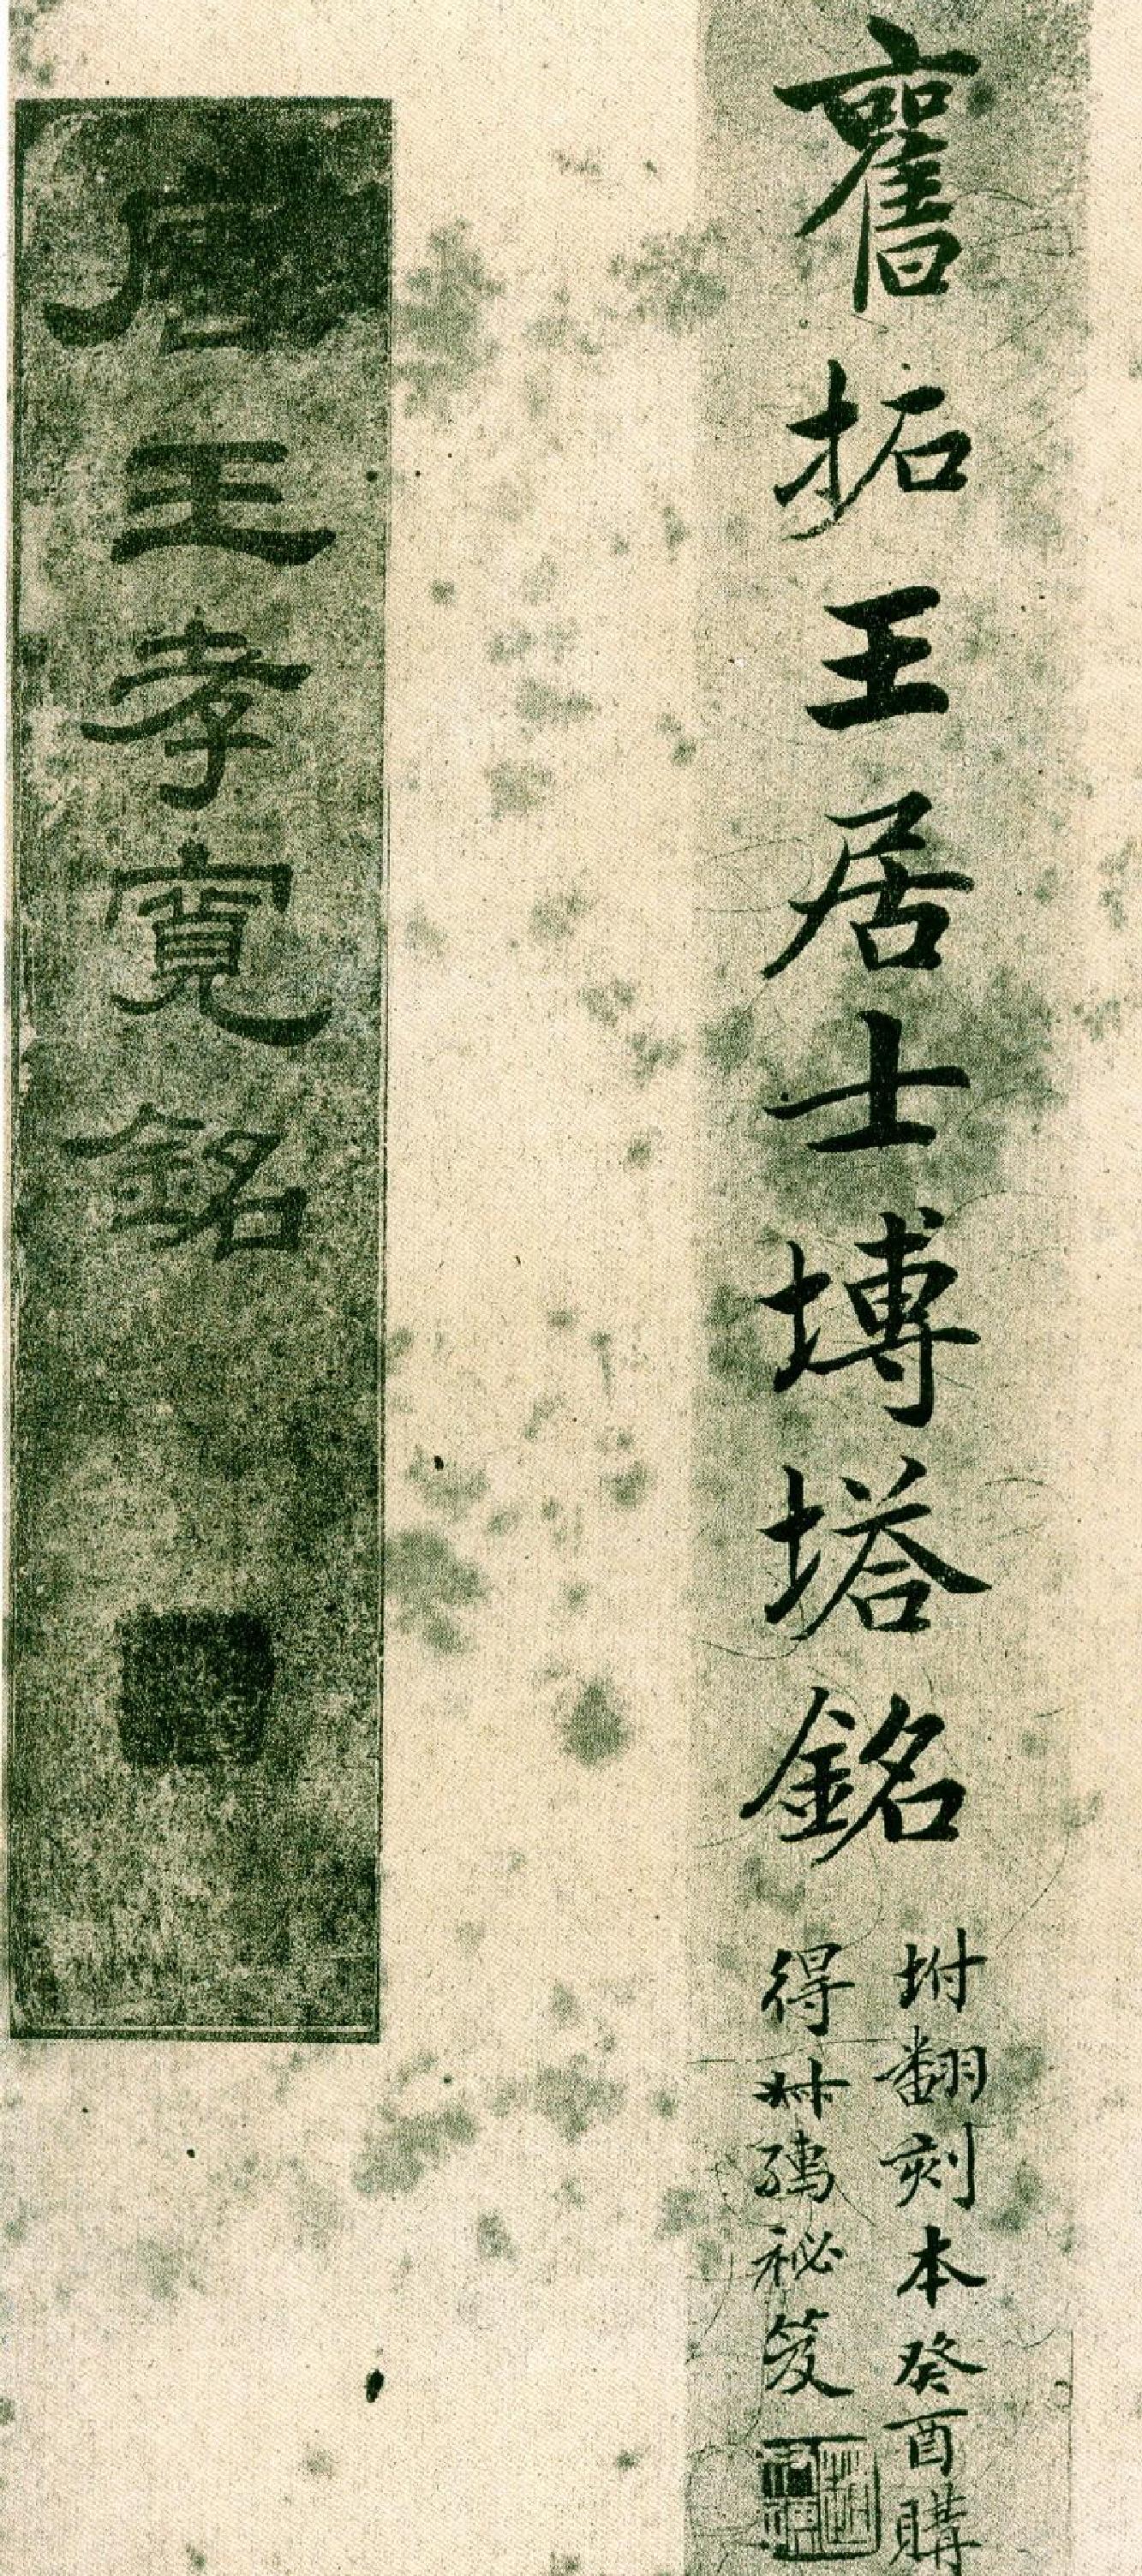 舊拓王居士塼塔銘
坿翻刻本癸酉購
得尗䳿祕笈
唐王孝寬銘